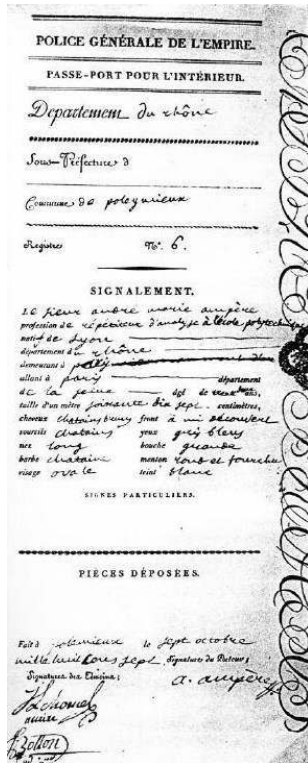 POLICE GÉNÉRALE DE L'EMPIRE.
PASSE-PORT POUR L'INTÉRIEUR.
Département du rhône
Sous-Préfecture d
Commune de poleymieux
Registre N.º 6.
SIGNALEMENT.
Le sieur andre marie ampère
profession de répétiteur d'analyse à l'école polytechnique
natif de Lyon
département du rhône
demeurant à
allant à paris département
de la seine âgé de ans,
taille d'un mètre soixante dix sept centimètres,
cheveux chatains bruns front à mi découvert
sourcils chatains yeux gris bleus
nez long bouche grande
barbe chataine menton rond et fourchu
visage ovale teint blanc
SIGNES PARTICULIERS.
PIÈCES DÉPOSÉES.
Fait à polemieux le sept octobre
mille huit cens sept Signatures du Porteur;
Signatures des Témoins; a. ampère